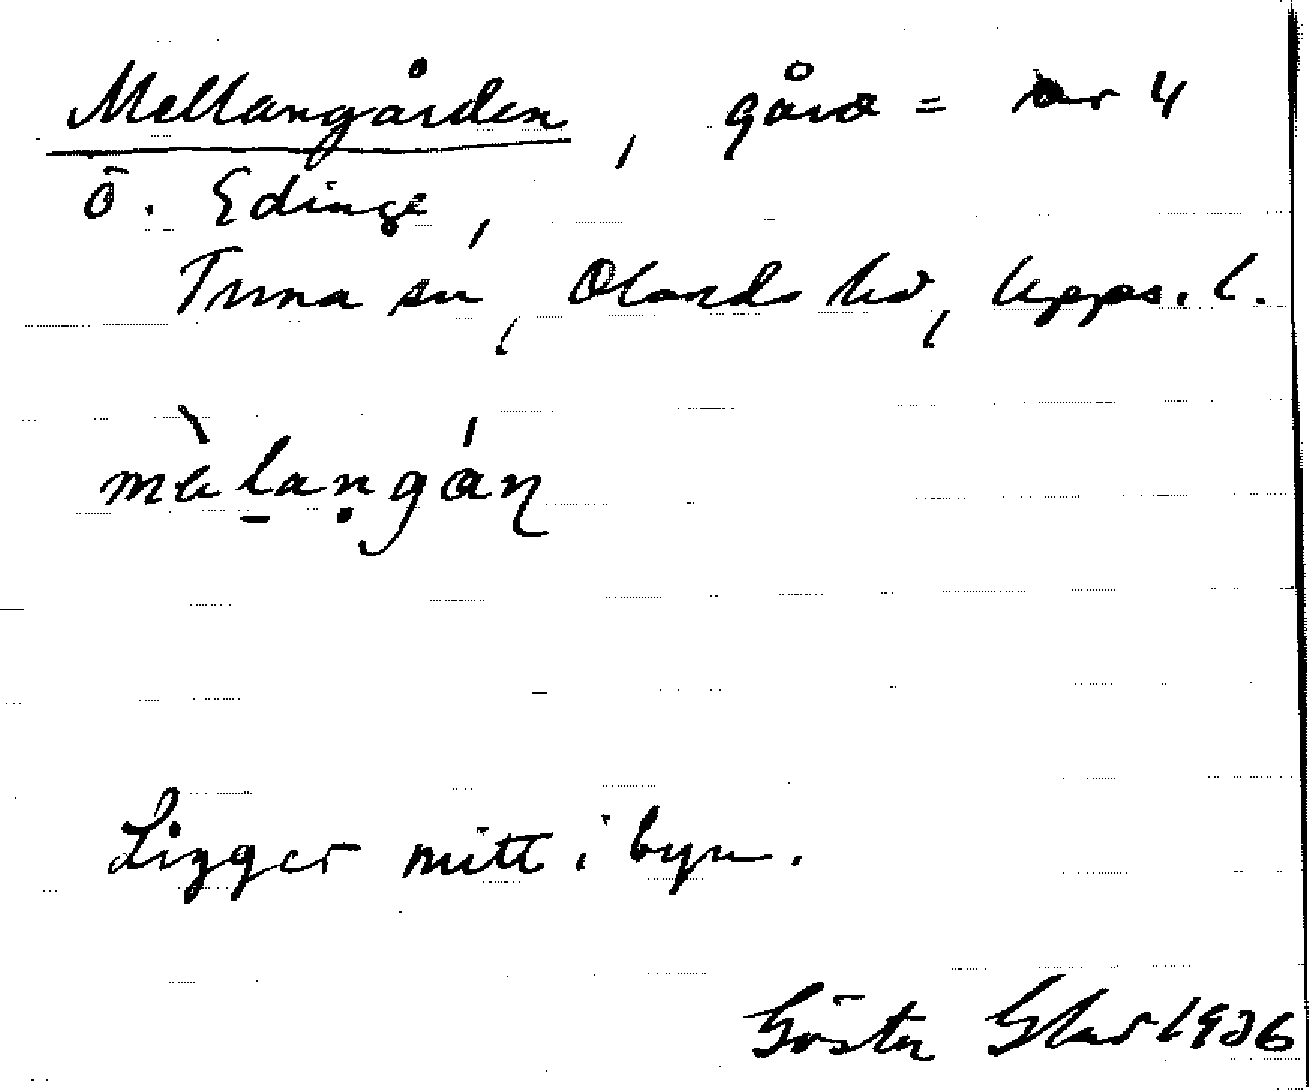 Mellangården, gård = nr 4
Ö. Edinge,
Tuna sn, Olands hd, Upps. l.
mèlaṇgán
Ligger mitt i byn.
Gösta 1926